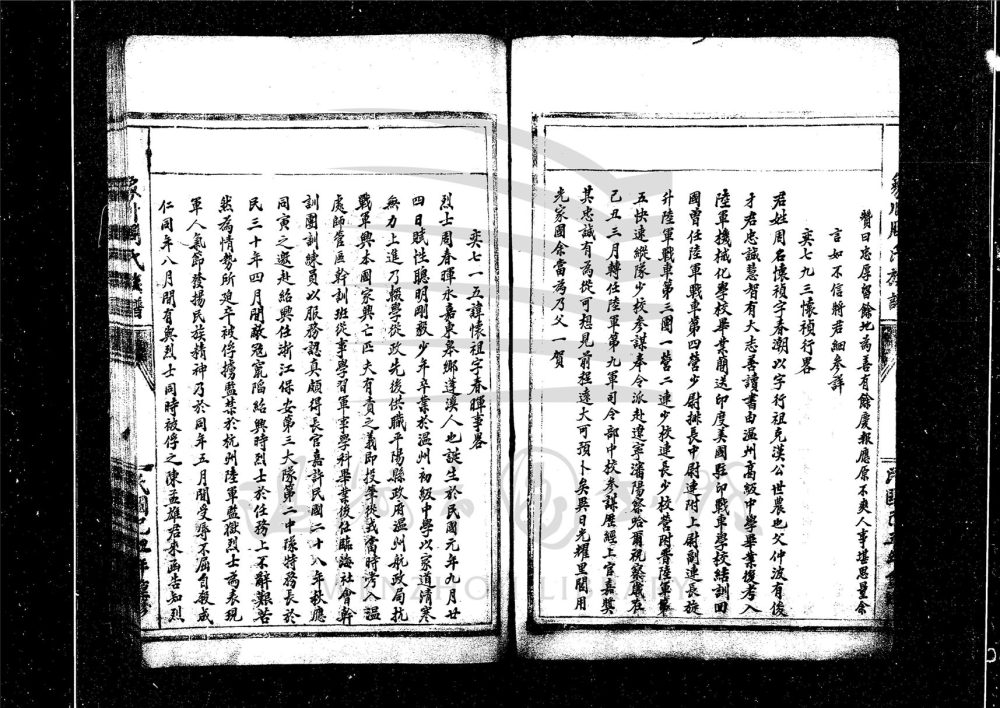 贊曰忠厚留餘地為善有餘慶報應原不爽人事堪思量余
言如不信將君細參詳
奕七九三懷禎行畧
君姓周名懷禎字春潮以字行祖克漢公世農也父仲波有俊
才君忠誠慧智有大志善讀書由温州高級中學畢業後考入
陸軍機械化學校畢業蘭送印度美國駐印戰軍學校結訓回
國曾任陸軍戰車第四營少尉排長中尉連附上尉副連長旋
升陸軍戰車第三團一營二連少校連長少校營附晉陸軍第
五快速縱隊少校參謀奉令派赴遼寧瀋陽察哈爾視察歲在
己丑三月轉任陸軍第九軍司令部中校參謀歷經上官嘉獎
其忠誠有為從可想見前程遠大可預卜矣異日光耀里閭用
光家國余當為乃父一賀
奕七一五諱懷祖字春暉事畧
烈士周春暉永嘉東皋鄉蓬溪人也誕生於民國元年九月廿
四日賦性聰明剛毅少年卒業於温州初級中學以家道清寒
無力上進乃輟學從政先後供職平陽縣政府温州航政局抗
戰軍興本國家興亡匹夫有責之義即投筆從戎當時考入温
處師管區幹訓班從事學習軍事學科畢業後任臨海社會幹
訓團訓練員以服務認真頗得長官嘉許民國二十八年秋應
同寅之邀赴紹興任浙江保安第三大隊第二中隊特務長於
民三十年四月間敵寇竄陷紹興時烈士於任務上不辭艱苦
然為情勢所迫卒被俘擄監禁於杭州陸軍監獄烈士為表現
軍人氣節發揚民族精神乃於同年五月間受辱不屈自殺成
仁同年八月間有與烈士同時被俘之陳孟雄君來函告知烈
WENZHOU LIBRARY